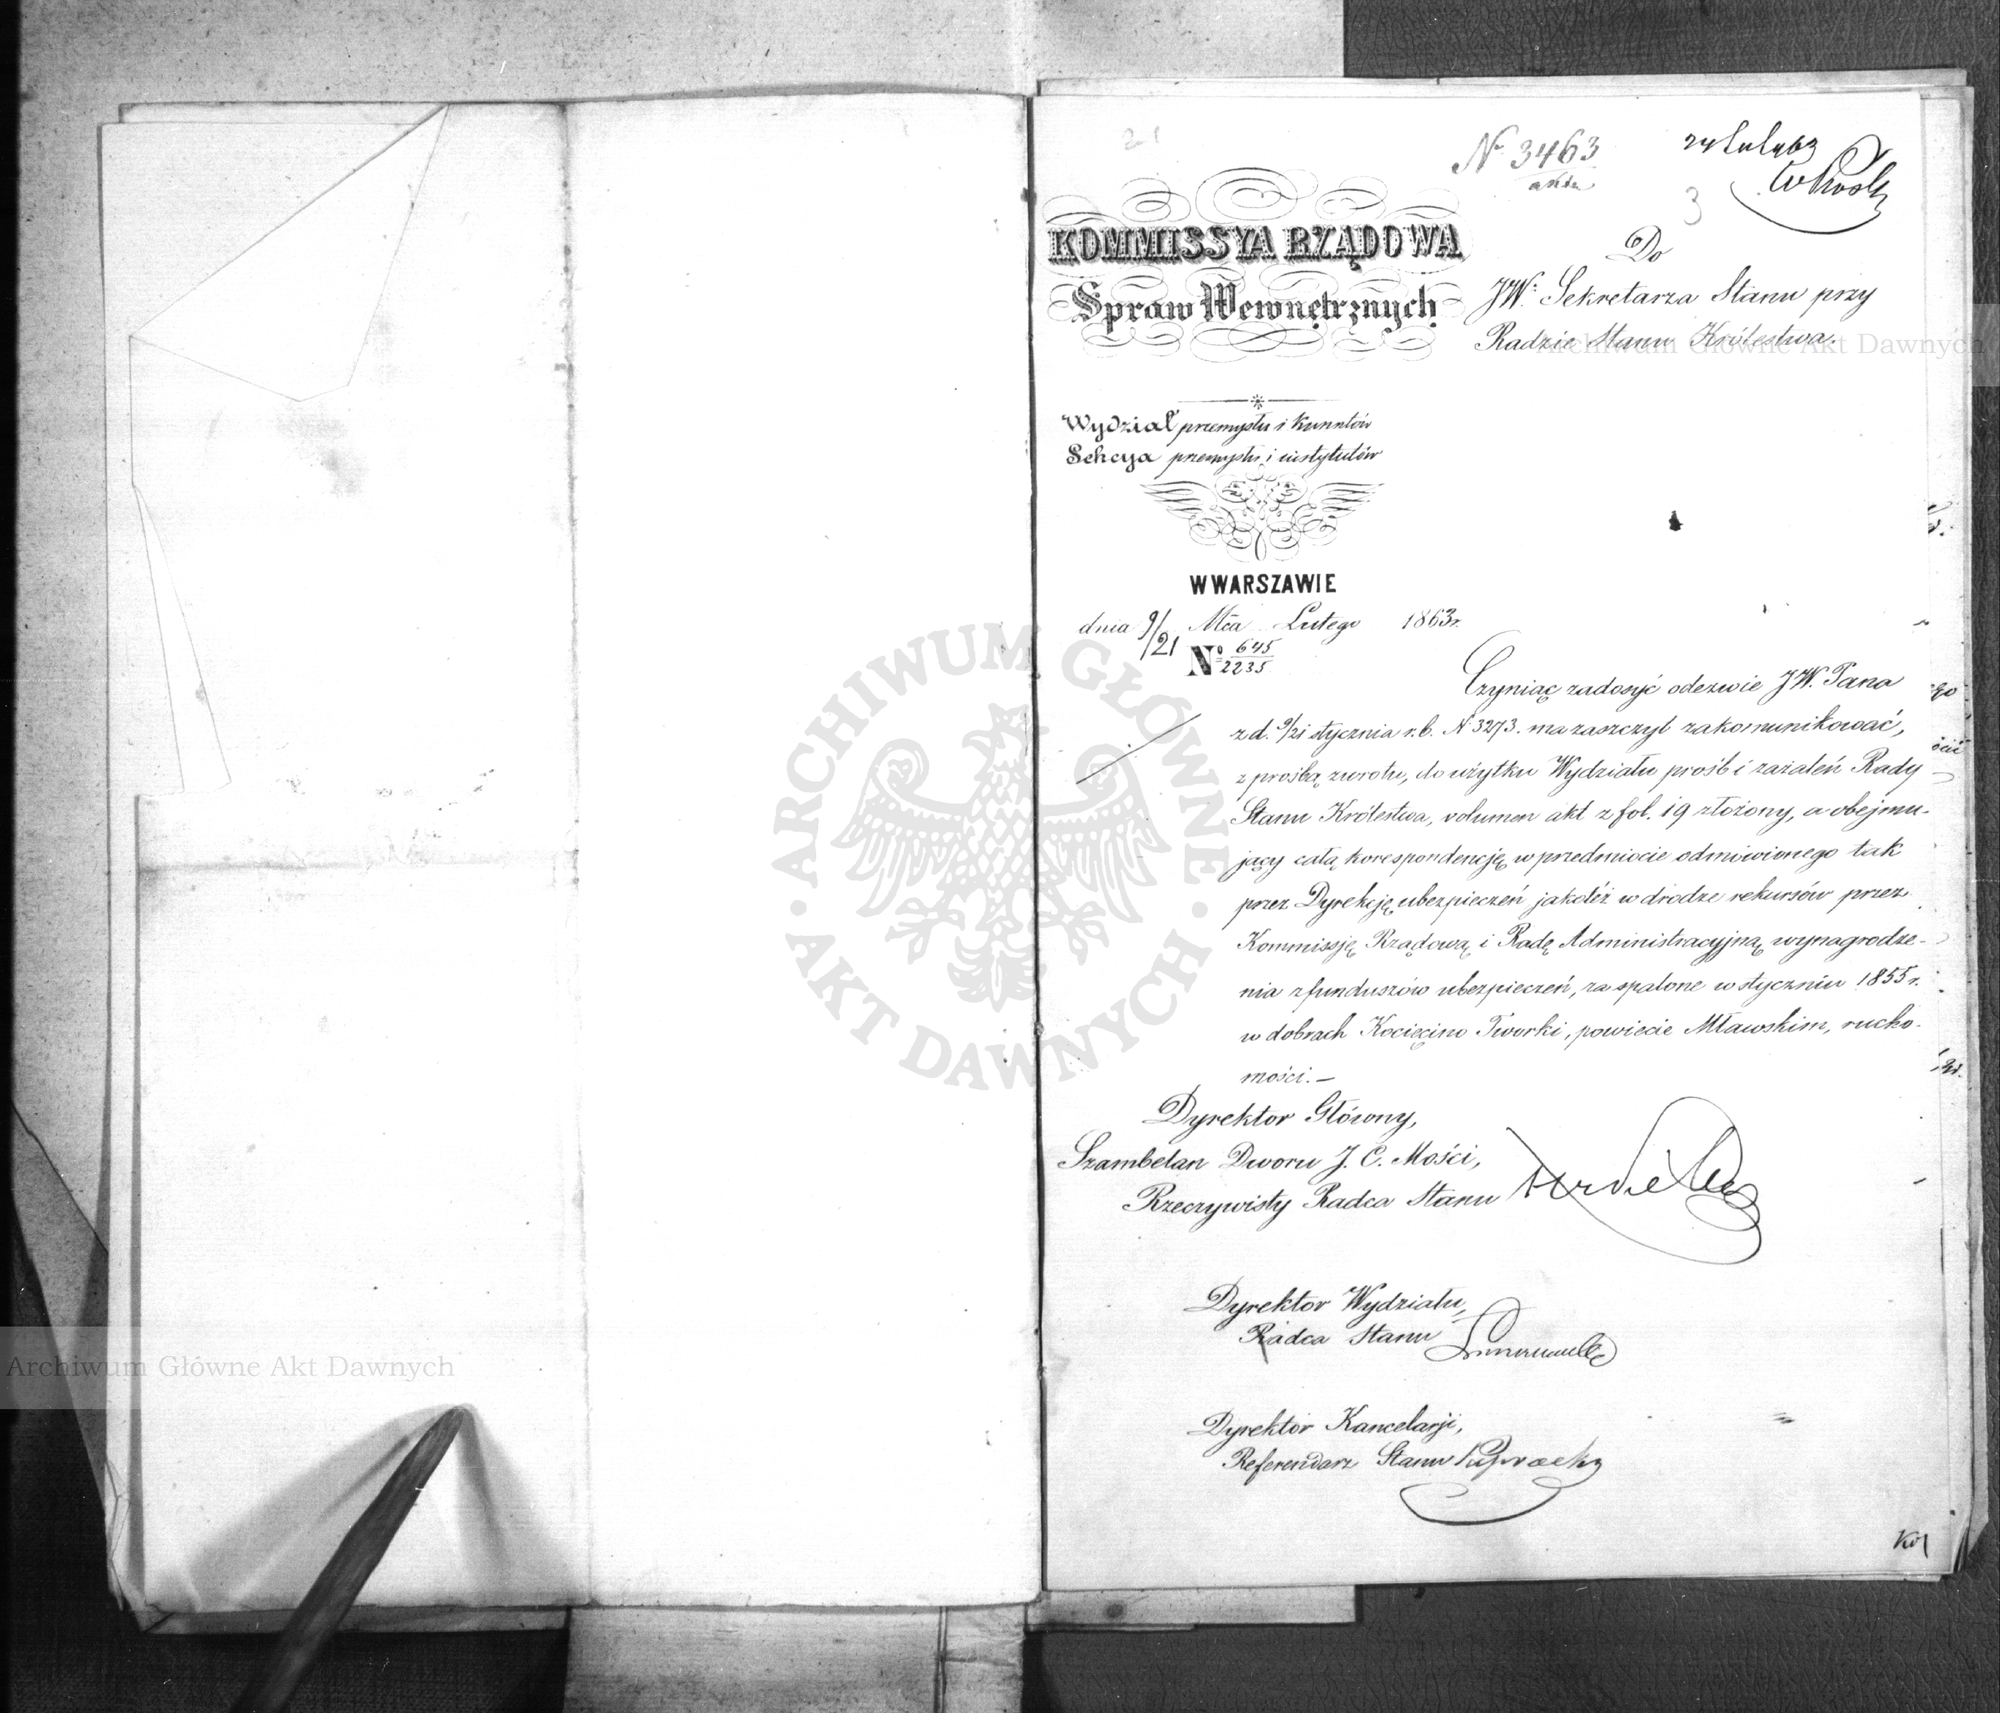 21
N 3463
akta
24 Lut 1863
3
KOMMISSYA RZĄDOWA
Spraw Wewnętrznych
Do
JW: Sekretarza Stanu przy
Radzie Stanu Królestwa.
Wydział przemysłu i kunsztów
Sekcya przemysłu i instytutów
W WARSZAWIE
dnia 9/21 Mca Lutego 1863 r.
No 645/2235
Czyniąc zadosyć odezwie JW. Pana
z d. 9/21 stycznia r. b. N 3273. ma zaszczyt zakomunikować,
z prośbą zwrotu, do użytku Wydziału prośb i zażaleń Rady
Stanu Królestwa, volumen akt z fol. 19 złożony, a obejmu-
jący całą korespondencję w przedmiocie odmówionego tak
przez Dyrekcję ubezpieczeń jakotéż w drodze rekursów przez
Kommissję Rządową i Radę Administracyjną wynagrodze-
nia z funduszów ubezpieczeń, za spalone w styczniu 1855 r.
w dobrach Kocięcino Tworki, powiecie Mławskim, rucho-
mości. —
Dyrektor Główny,
Szambelan Dworu J. C. Mości,
Rzeczywisty Radca Stanu
Dyrektor Wydziału,
Radca Stanu
Dyrektor Kancelarji,
Referendarz Stanu
ARCHIWUM GŁÓWNE AKT DAWNYCH
Archiwum Główne Akt Dawnych
Archiwum Główne Akt Dawnych